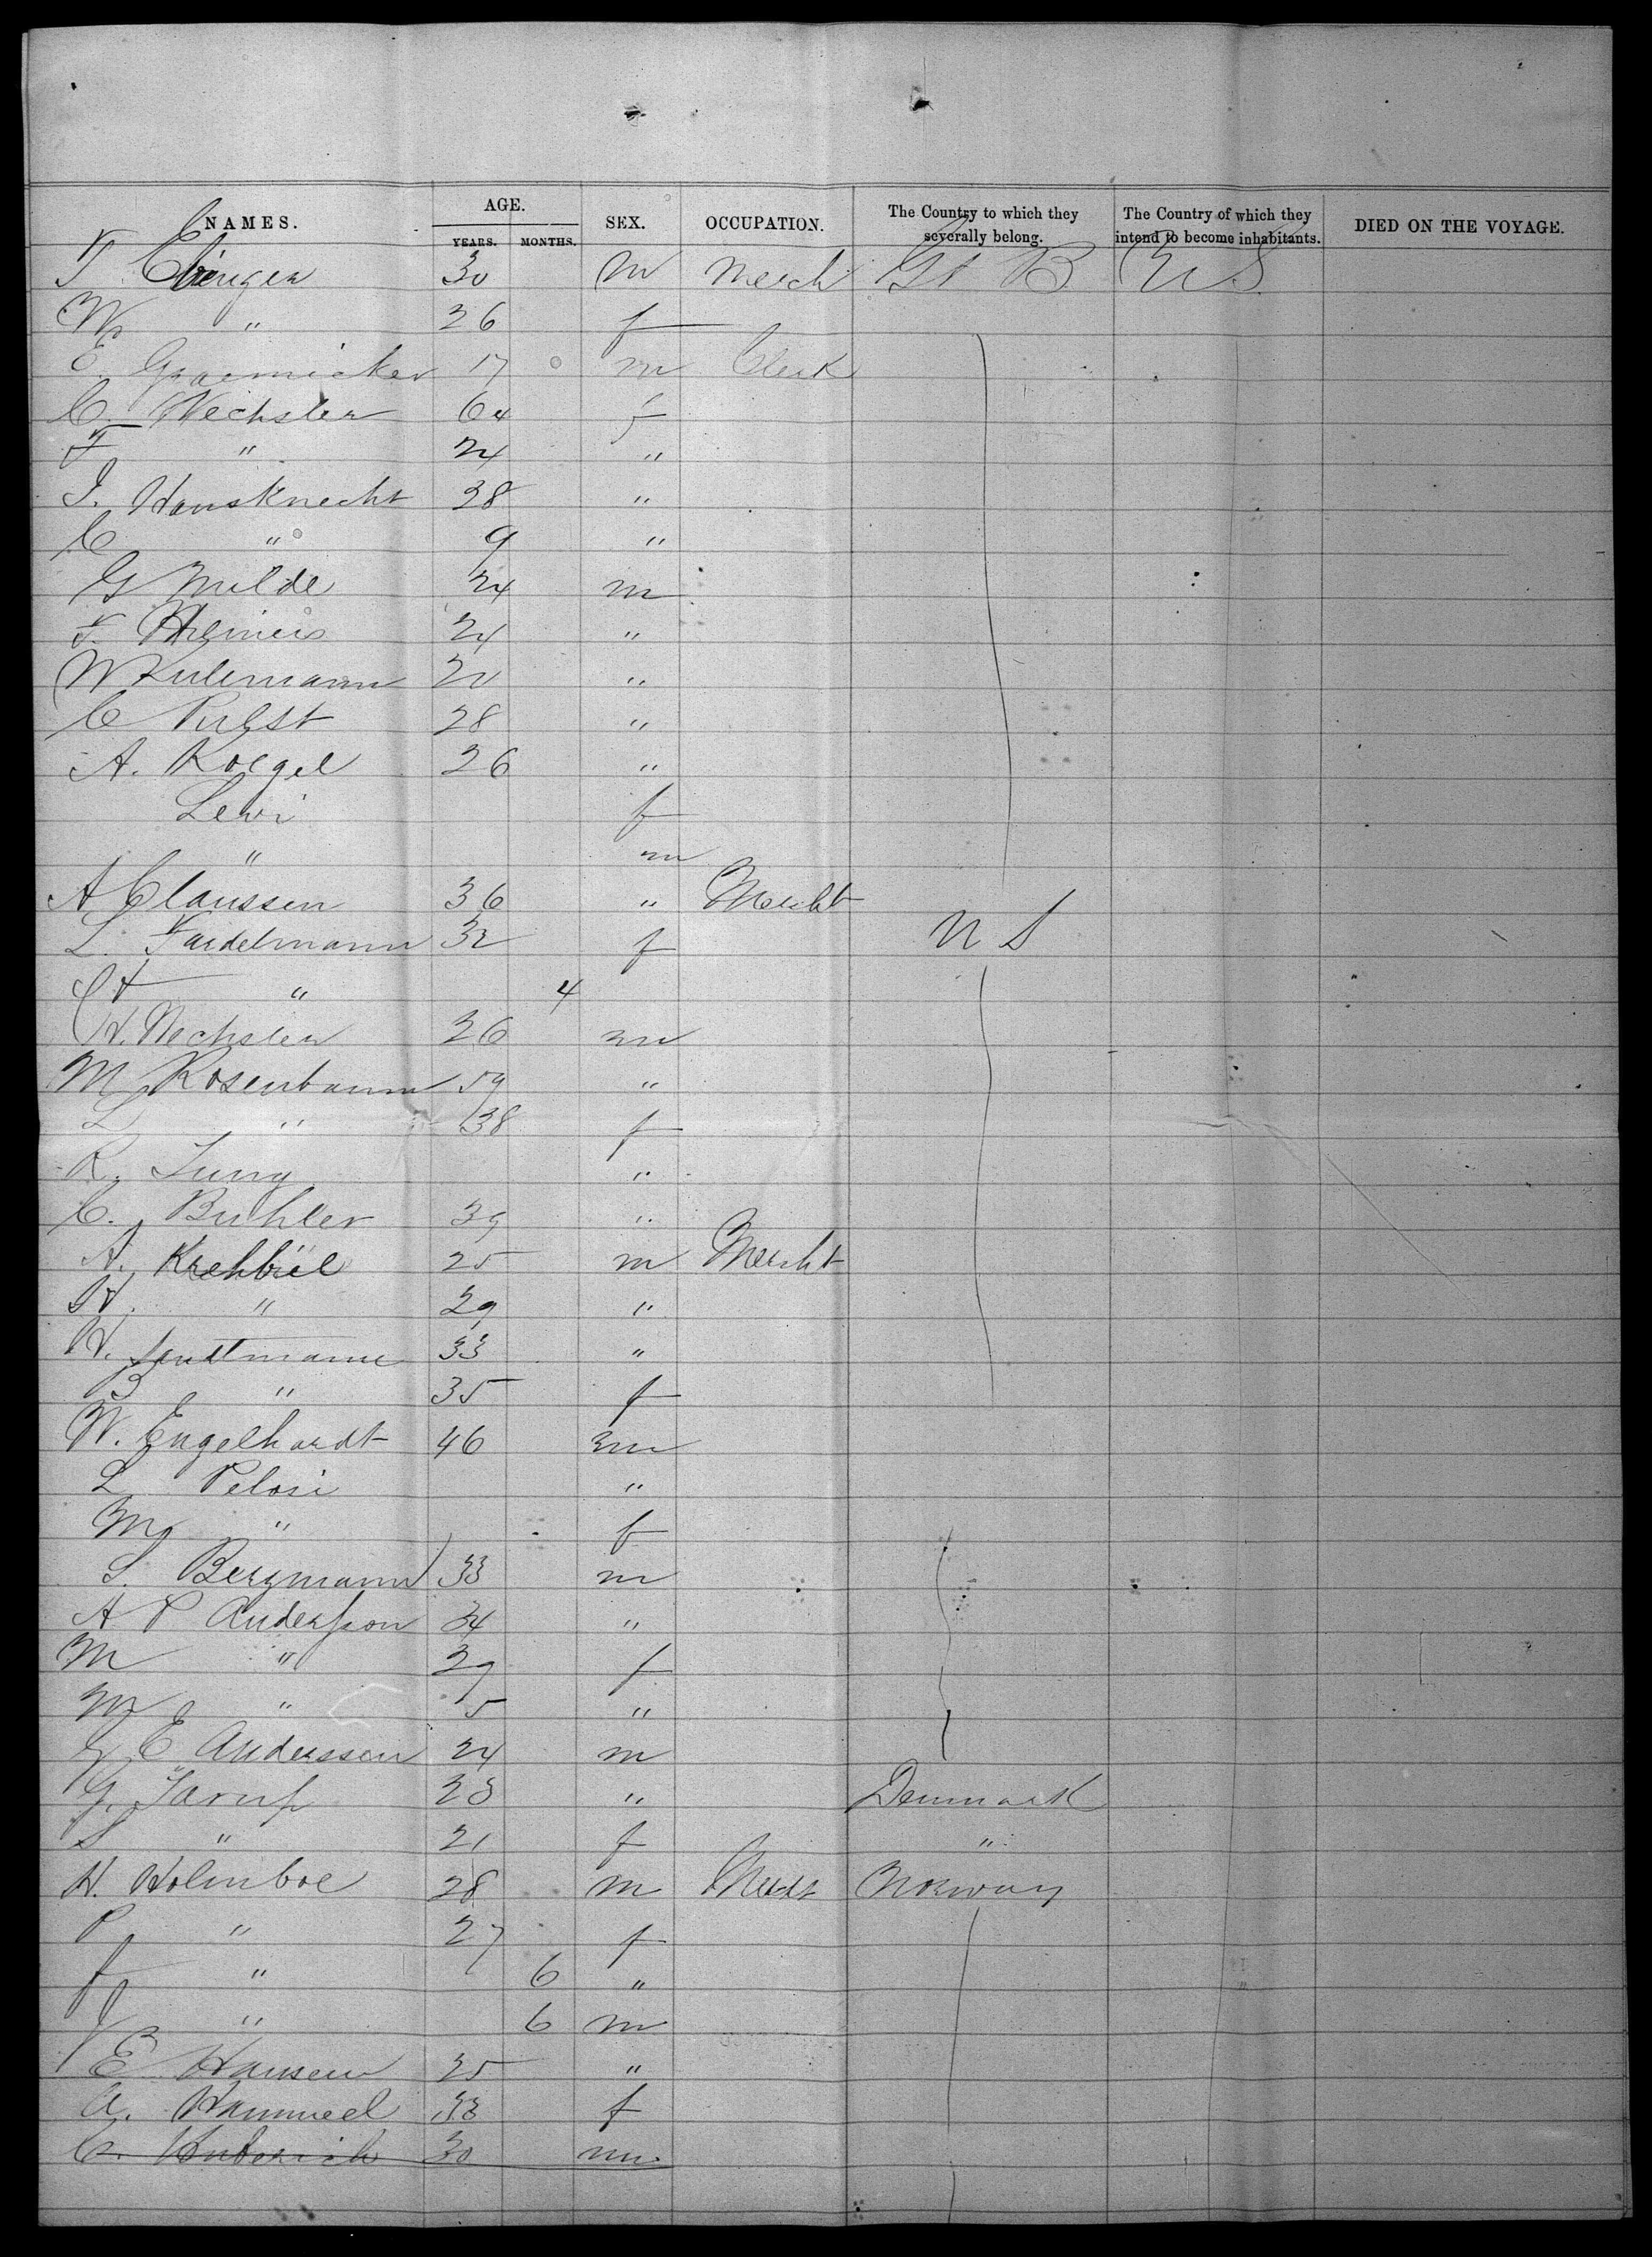 NAMES. AGE. SEX. OCCUPATION. The Country to which they severally belong. The Country of which they intend to become inhabitants. DIED ON THE VOYAGE.
YEARS. MONTHS.
F Ebinger 30 m Merch Gt B U S
M " 26 f
E. Graemicker 17 m Clerk
C. Wechsler 64 f
F " 24 "
I. Hausknecht 28 "
C " 9 "
G Milde 24 m
F. 24 "
W Kulemann 20 "
C Pulst 28 "
A. Koegel 26 "
Levi f
" m
A Claussen 36 " Mercht
L. Faedelmann 32 f U S
H " 4
H. Wechsler 26 m
M Rosenbaum 59 "
L " 38 f
R. Jung "
C. Buhler 39 "
A. Krehbiel 25 m Mercht
H. " 29 "
H. Landtmann 33 "
B " 35 f
W. Engelhardt 46 m
L Pelosi "
M " f
S. Bergmann 33 m
A P Andersson 34 "
M " 29 f
M " 5 "
G E Anderssen 24 m
G. Jarup 23 " Denmark
S " 21 f "
H. Holmboe 28 m Mercht Norway
P " 27 f
f " 6 "
J " 6 m
E Hansen 25 "
A. Hammeel 33 f
C. 30 m